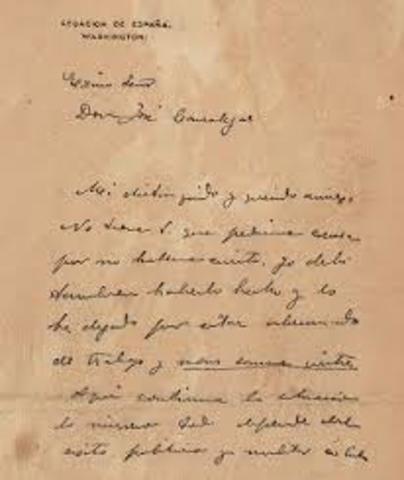 LEGACION DE ESPAÑA.
WASHINGTON.
Excmo Señor
Don José Canalejas
Mi distinguido y querido amigo:
No tiene V. que pedirme excusa
por no haberme escrito. yo debí
tambien haberlo hecho y lo
he dejado por estar abrumado
de trabajo y
Aquí continua la situacion
lo mismo. Todo depende del
exito politico y militar en Cuba